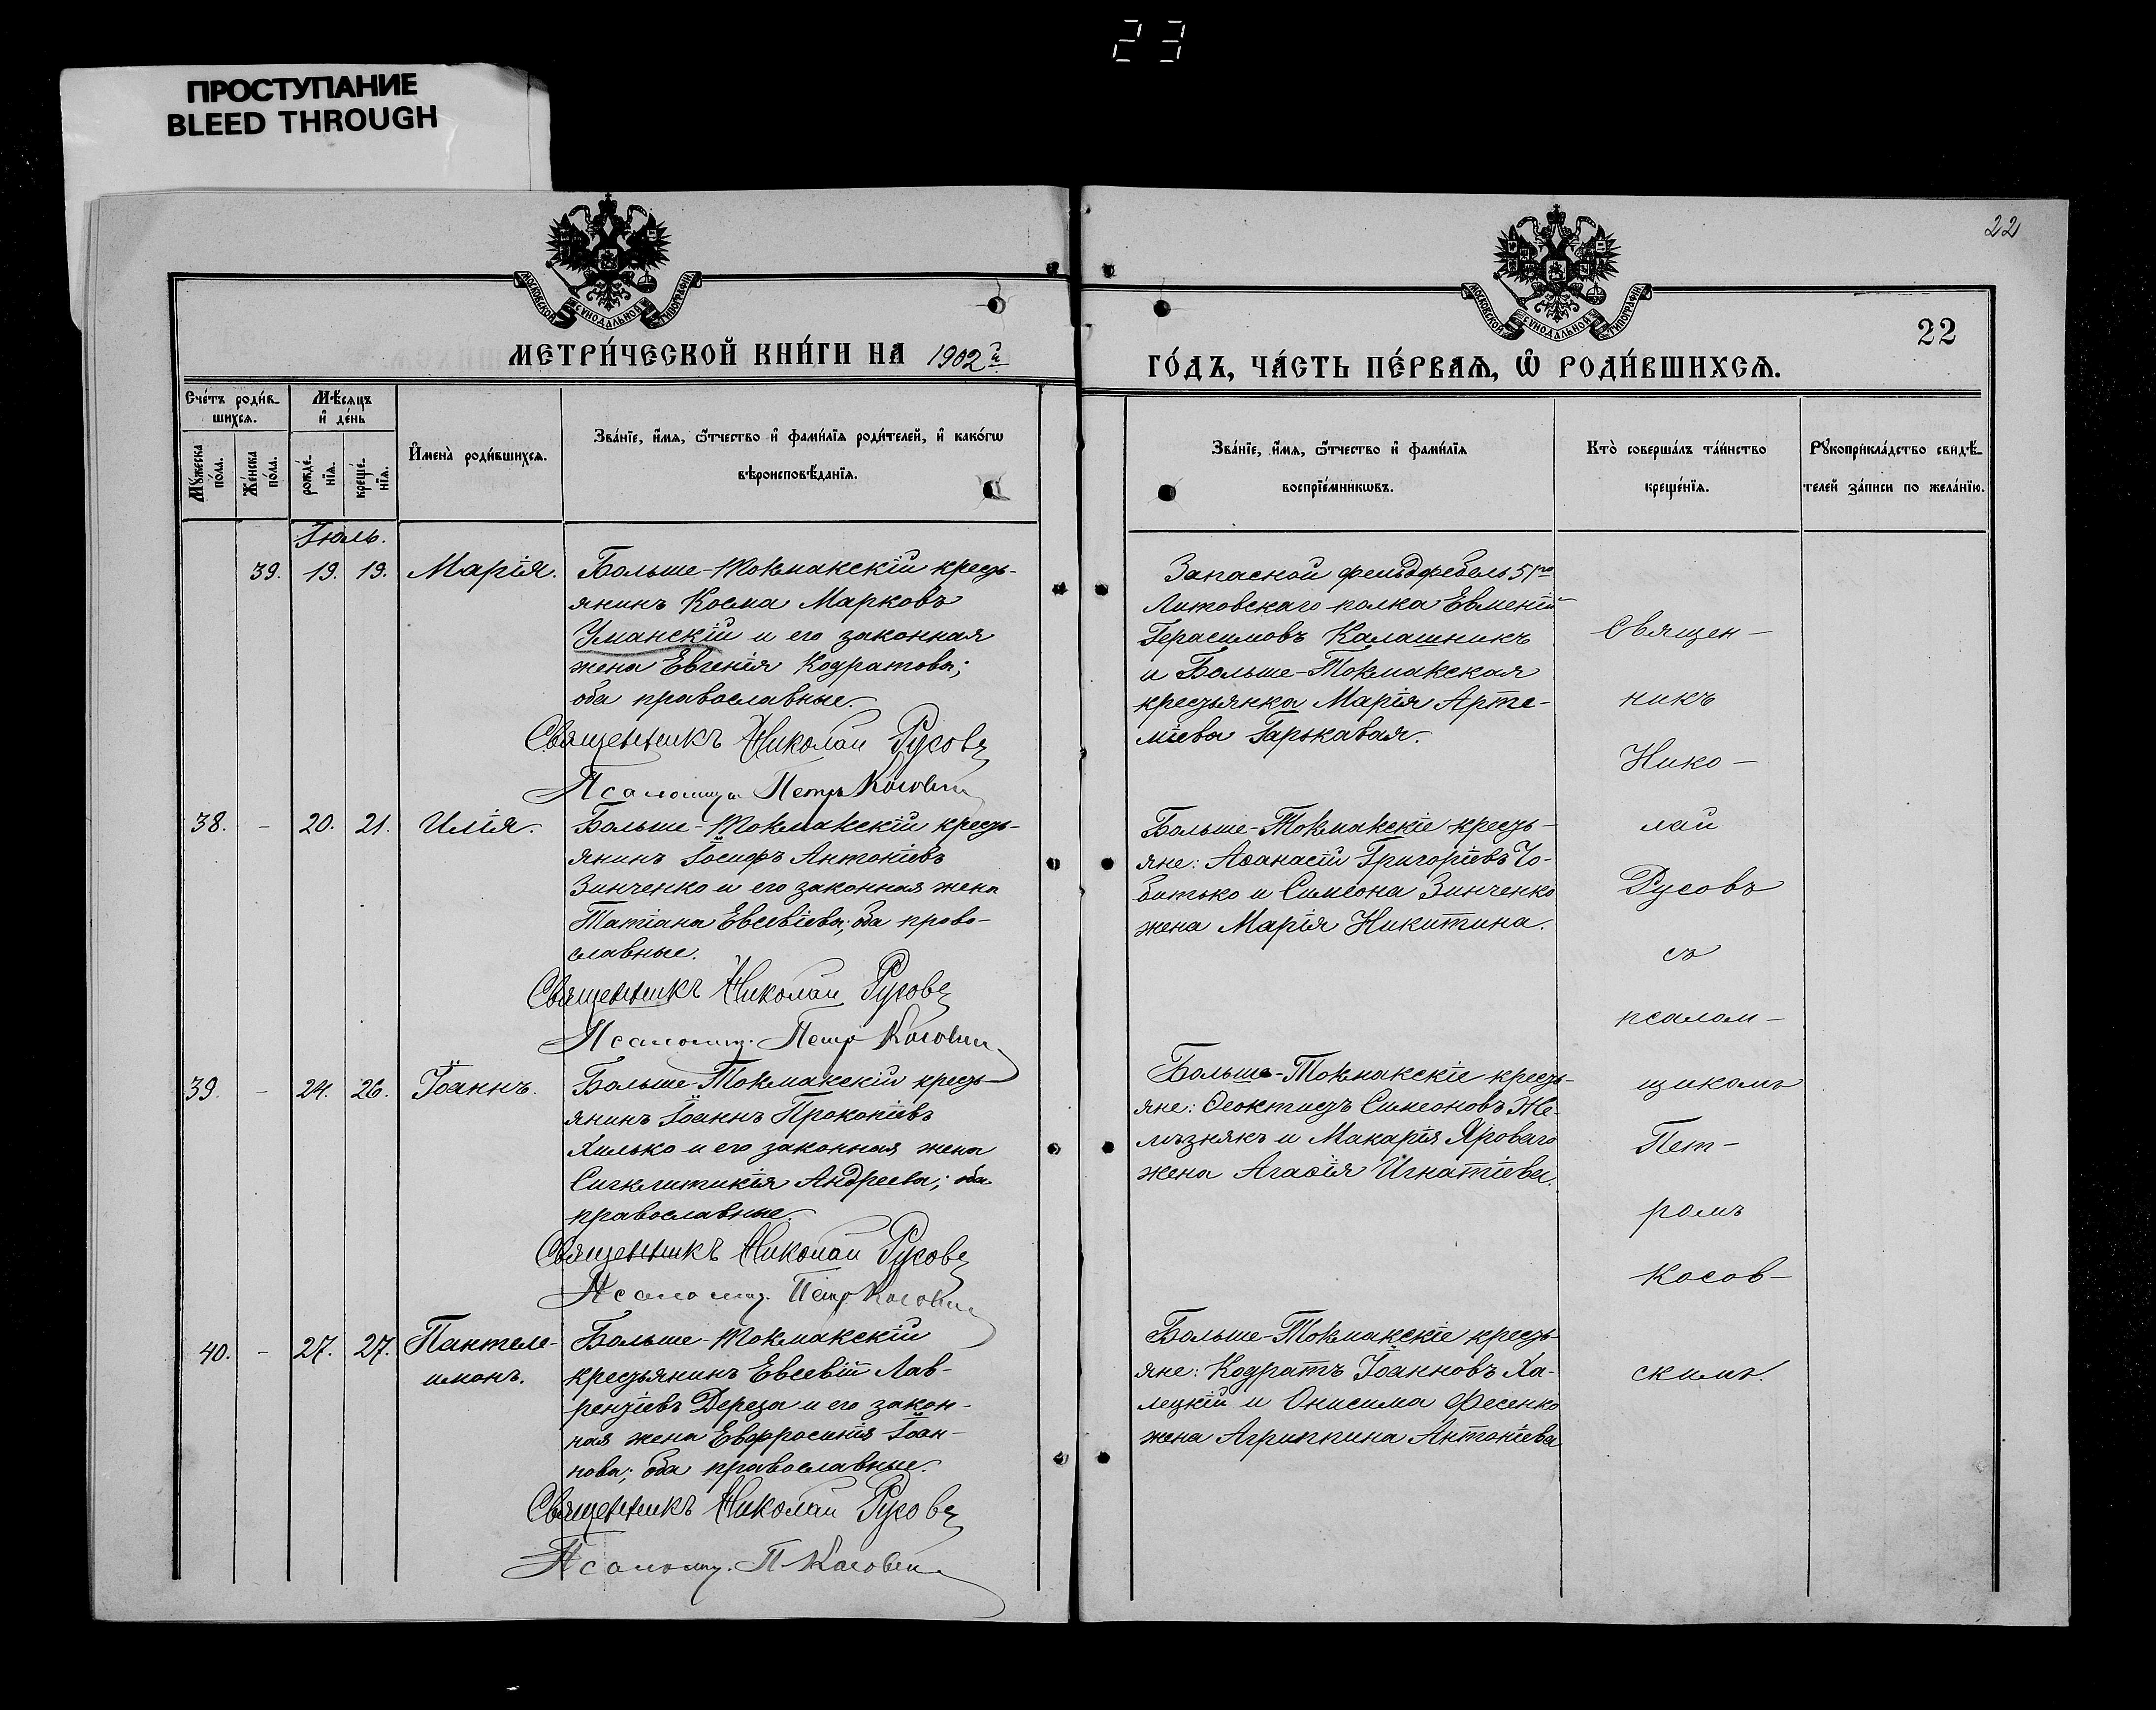 23
ПРОСТУПАНИЕ
BLEED THROUGH
22
МОСКОВСКОЙ СѴНОДАЛЬНОЙ ТИПОГРАФІИ
МОСКОВСКОЙ СѴНОДАЛЬНОЙ ТИПОГРАФІИ
22
МЕТРИ́ЧЕСКОЙ КНИ́ГИ НА 1902 й
ГО́ДЪ, ЧА́СТЬ ПЕ́РВАѦ, Ѽ РОДИ́ВШИХСѦ.
Сче́тъ роди́в-
шихсѧ.
Мѣ́сѧцъ
и҆ де́нь
Мꙋ́жеска
по́ла.
Же́нска
по́ла.
рожде́-
нїѧ.
креще́-
нїѧ.
И҆мена̀ роди́вшихсѧ.
Зва́нїе, и҆́мѧ, ѻ҆́тчество и҆ фами́лїѧ роди́телей, и҆ како́гѡ
вѣроисповѣ́данїѧ.
Зва́нїе, и҆́мѧ, ѻ҆́тчество и҆ фами́лїѧ
воспрїе́мникѡвъ.
Кто̀ соверша́лъ та́инство
креще́нїѧ.
Рꙋкоприкла́дство свидѣ́-
телей за́писи по жела́нїю.
Іюль.
39. 19. 19. Марія. Больше-Токмакскій кресть-
янинъ Косма Марковъ
Уманскій и его законная
жена Евгенія Кодратова;
оба православные.
Священникъ Николай Русовъ
Псаломщ. Петръ Косовскій
Запасной фельдфебель 51го
Литовскаго полка Евменій
Герасимовъ Калашникъ
и Больше-Токмакская
крестьянка Марія Арте-
міева Гарькавая.
38. - 20. 21. Илія. Больше-Токмакскій кресть-
янинъ Іосифъ Антоніевъ
Зинченко и его законная жена
Татіана Евсевіева; оба право-
славные.
Священникъ Николай Русовъ
Псаломщ. Петръ Косовскій
Больше-Токмакскіе кресть-
яне: Аѳанасій Григоріевъ Чо-
битько и Симеона Зинченко
жена Марія Никитина.
39. - 24. 26. Іоаннъ. Больше-Токмакскій кресть-
янинъ Іоаннъ Прокопіевъ
Хилько и его законная жена
Сигклитикія Андреева; оба
православные.
Священникъ Николай Русовъ
Псаломщ. Петръ Косовскій
Больше-Токмакскіе кресть-
яне: Ѳеоктистъ Симеоновъ Же-
лѣзнякъ и Макарія Яроваго
жена Агаѳія Игнатіева.
40. - 27. 27. Пантеле-
имонъ. Больше-Токмакскій
крестьянинъ Евсевій Лав-
рентіевъ Дереза и его закон-
ная жена Евфросинія Іоан-
нова; оба православные.
Священникъ Николай Русовъ
Псаломщ. П. Косовскій
Больше-Токмакскіе кресть-
яне: Кодратъ Іоанновъ Ха-
лецкій и Онисима Фесенко
жена Агриппина Антоніева
Священ-
никъ
Нико-
лай
Русовъ
съ
псалом-
щикомъ
Пет-
ромъ
Косов-
скимъ.